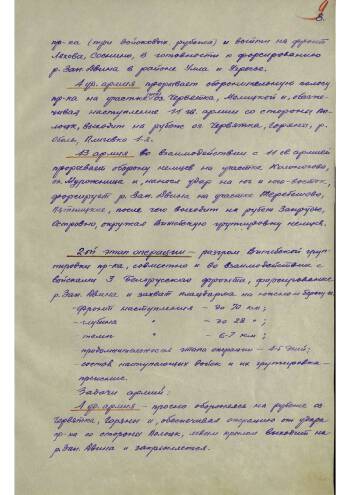 8.
пр-ка (три войсковых рубежа) и выйти на фронт
Ляхова, Соснино, в готовности к форсированию
р. Зап. Двина в районе Улла и
4 уд. армия прорывает оборонительную полосу
пр-ка на участке оз. Червятка, и, обеспе-
чивая наступление 11 гв. армии со стороны По-
лоцк, выходит на рубеж оз. Червятка, Горяны, р.
Оболь,
43 армия во взаимодействии с 11 гв. армией
прорывает оборону немцев на участке
и, нанося удар на юг и юго-восток,
форсирует р. Зап. Двина на участке
после чего выходит на рубеж
Островно, окружая Витебскую группировку немцев.
2ой этап операции – разгром Витебской груп-
пировки пр-ка, совместно и во взаимодействии с
войсками 3 Белорусского фронта, форсирование
р. Зап. Двина и захват плацдарма на южном берегу.
- фронт наступления – до 70 км;
- глубина " – до 28 " ;
- темп " – 6-7 км;
- продолжительность этапа операции – 4-5 дней;
- состав наступающих войск и их группировка –
прежние.
Задачи армий:
4 уд. армия – прочно обороняясь на рубеже оз.
Червятка, Горяны и, обеспечивая операцию от удара
пр-ка со стороны Полоцк, левым крылом выходит на
р. Зап. Двина и закрепляется.